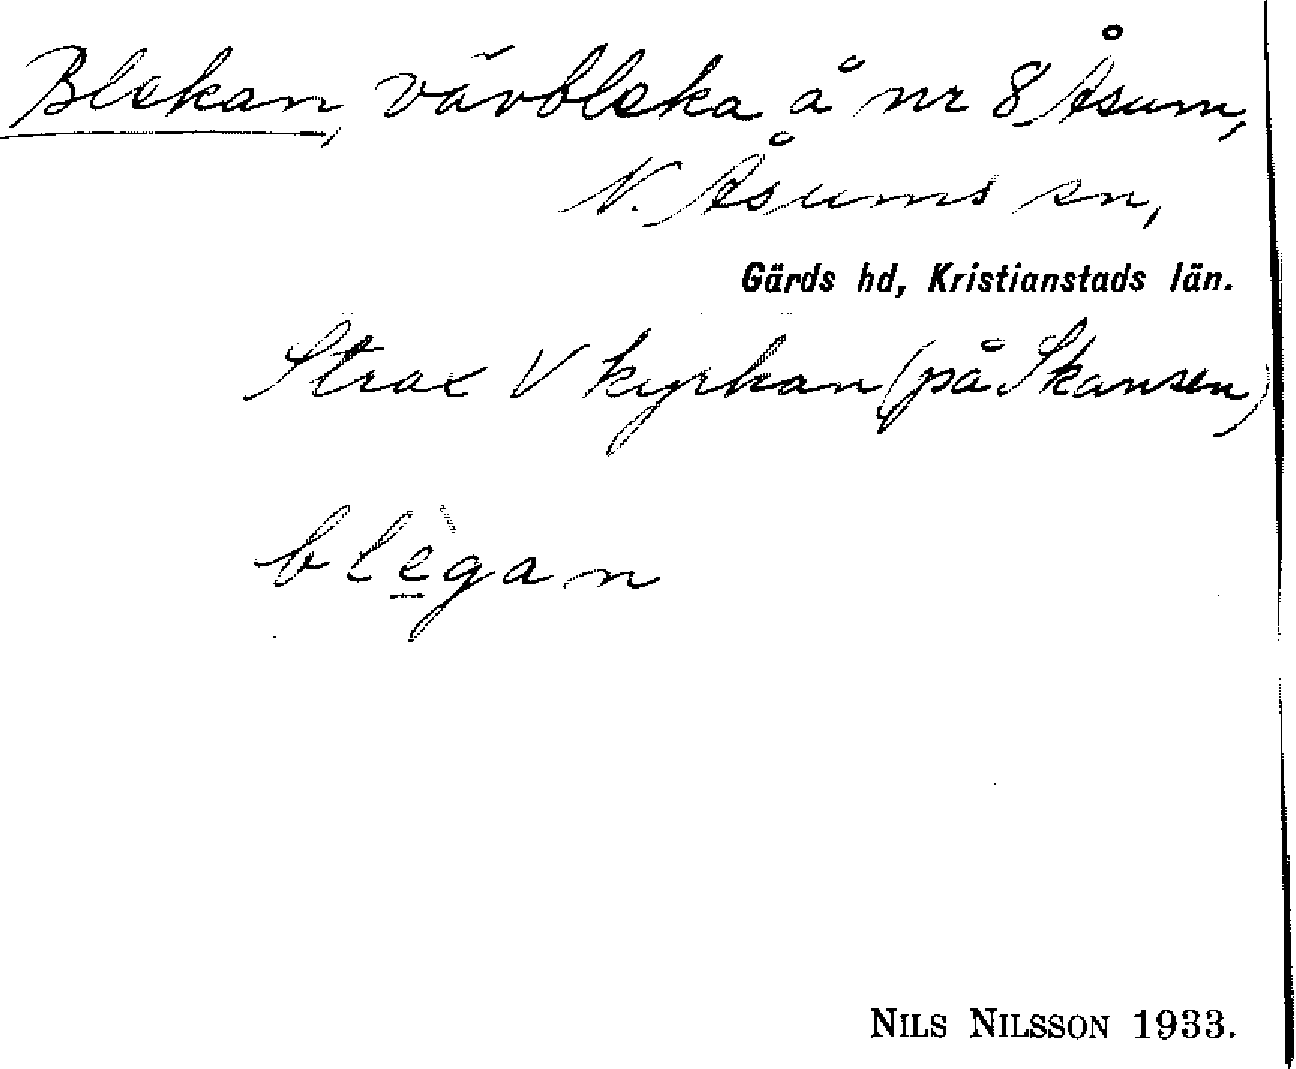 Blekan, vävbleka å nr 8 Åsum,
N. Åsums sn,
Gärds hd, Kristianstads län.
Strax V kyrkan (på Skansen)
blègan
NILS NILSSON 1933.